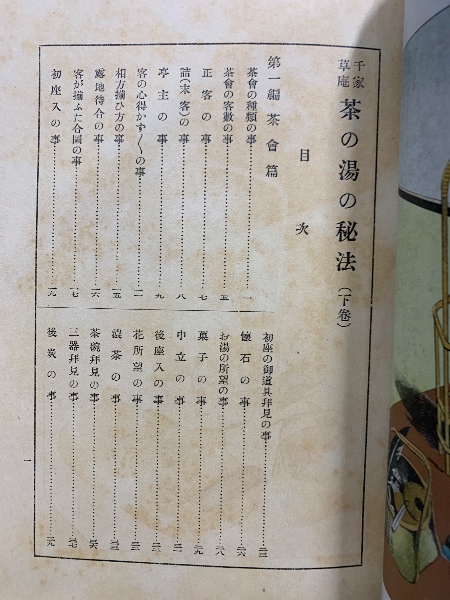 千家
草庵
茶の湯の秘法（下卷）
目次
第一編 茶會篇
茶會の種類の事……一
茶會の客數の事……五
正客の事……七
詰（末客）の事……八
亭主の事……九
客の心得かず〱の事……二
相方揃ひ方の事……五
露地待合の事……六
客が揃ふた合圖の事……七
初座入の事……元
初座の御道具拜見の事
懷石の事……
お湯の所望の事……
菓子の事……
中立の事……
後座入の事……
花所望の事……
濃茶の事……
茶碗拜見の事……
三器拜見の事……
後炭の事……
一